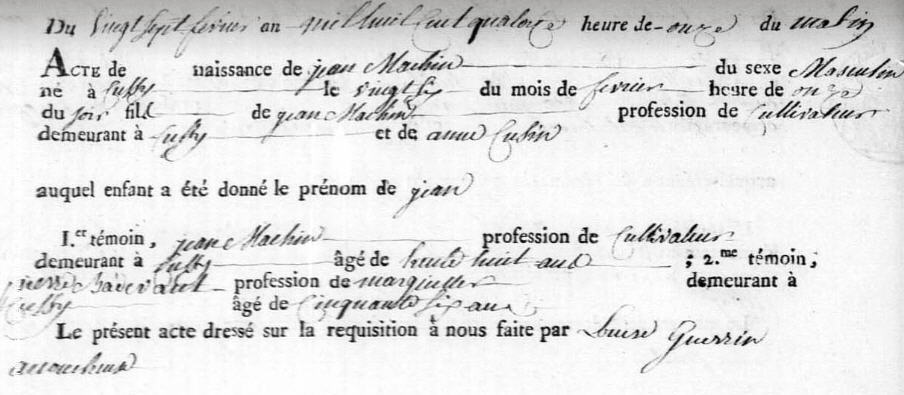 Du vingt sept fevrier an mil huit cent quatorze heure de onze du matin
ACTE de naissance de jean Machin du sexe Masculin
né à Cussy le vingt six du mois de fevrier heure de onze
du soir fils de jean Machin profession de Cultivateur
demeurant à Cussy et de anne Cusin
auquel enfant a été donné le prénom de jean
I.er témoin, jean Machin profession de Cultivateur
demeurant à Cussy âgé de trente huit ans ; 2.me témoin;
pierre profession de marguillier demeurant à
Cussy âgé de Cinquante six ans
Le présent acte dressé sur la requisition à nous faite par Louise Guerrin
acoucheuse